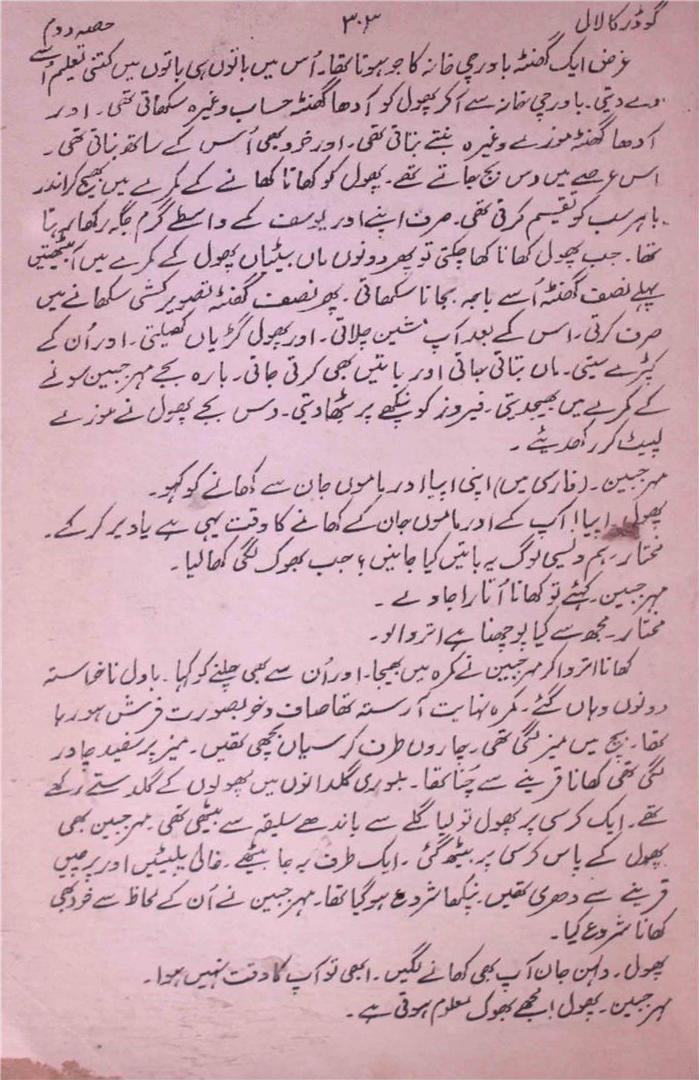 گوڈر کا لال ۳۰۳ حصہ دوم
غرض ایک گھنٹہ باورچی خانہ کا جو ہوتا تھا۔ اُس میں باتوں ہی باتوں میں کتنی تعلیم اُسے
دے دیتی۔ باورچی خانہ سے آکر پھول کو آدھا گھنٹہ حساب وغیرہ سکھاتی تھی۔ اور
آدھا گھنٹہ موزے وغیرہ بننے بتاتی تھی۔ اور خود بھی اُس کے ساتھ بناتی تھی۔
اس عرصے میں دس بج جاتے تھے۔ پھول کو کھانا کھانے کے کمرے میں بھیج کر اندر
باہر سب کو تقسیم کرتی تھی۔ صرف اپنے اور یوسف کے واسطے گرم جگہ رکھا رہتا
تھا۔ جب پھول کھانا کھا چکتی تو پھر دونوں ماں بیٹیاں پھول کے کمرے میں آبیٹھتیں
پہلے نصف گھنٹہ اُسے باجہ بجانا سکھاتی۔ پھر نصف گھنٹہ تصویر کشی سکھانے میں
صرف کرتی۔ اس کے بعد آپ مشین چلاتی۔ اور پھول گڑیاں کھیلتی۔ اور اُن کے
کپڑے سیتی۔ ماں بتاتی جاتی اور باتیں بھی کرتی جاتی۔ بارہ بجے مہر جبین سونے
کے کمرے میں بھیجدیتی۔ فیروز کو پنکھے پر بٹھا دیتی۔ دس بجے پھول نے موزے
لپیٹ کر رکھدیئے۔
مہر جبین۔ (فارسی میں) اپنی اپیا اور ماموں جان سے کھانے کو کہو۔
پھول۔ اپیا! آپ کے اور ماموں جان کے کھانے کا وقت یہی ہے یا دیر کر کے۔
مختار۔ ہم دلیسی لوگ یہ باتیں کیا جانیں؟ جب بھوک لگی کھا لیا۔
مہر جبین۔ کہئے تو کھانا اُتارا جاوے۔
مختار۔ مجھ سے کیا پوچھنا ہے اتروالو۔
کھانا اتروا کر مہر جبین نے کمرہ میں بھیجا۔ اور اُن سے بھی چلنے کو کہا۔ بادل ناخاستہ
دونوں وہاں گئے۔ کمرہ نہایت آرستہ تھا صاف و خوبصورت فرش ہو رہا
تھا۔ بیچ میں میز لگی تھی۔ چاروں طرف کرسیاں بچھی تھیں۔ میز پر سفید چادر
لگی تھی کھانا قرینے سے چُنا تھا۔ بلوری گلدانوں میں پھولوں کے گلدستے رکھے
تھے۔ ایک کرسی پر پھول تولیا گلے سے باندھے سلیقہ سے بیٹھی تھی۔ مہر جبین بھی
پھول کے پاس کرسی پر بیٹھ گئی۔ ایک طرف یہ جا بیٹھے۔ خالی پلیٹیں اور پرچیں
قرینے سے دھری تھیں۔ پنکھا شروع ہو گیا تھا۔ مہر جبین نے اُن کے لحاظ سے خود بھی
کھانا شروع کیا۔
پھول۔ دلہن جان آپ بھی کھانے لگیں۔ ابھی تو آپ کا وقت نہیں ہوا۔
مہر جبین۔ پھول! مجھے بھوک معلوم ہوتی ہے۔